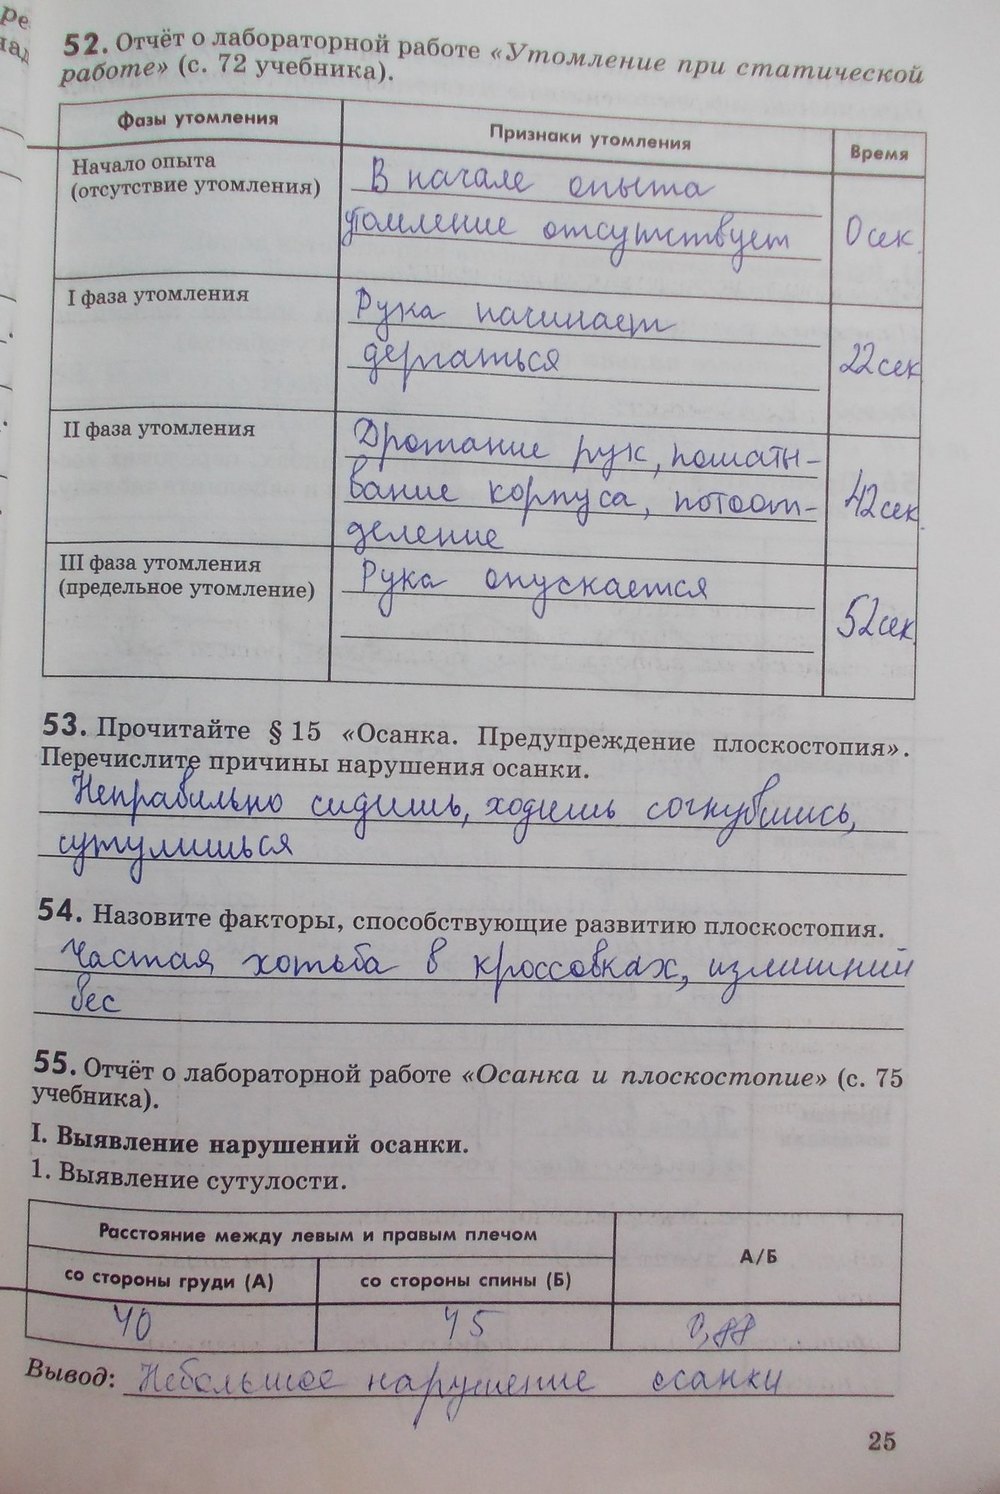 ре
над
52. Отчёт о лабораторной работе «Утомление при статической
работе» (с. 72 учебника).
Фазы утомления
Признаки утомления
Время
Начало опыта
(отсутствие утомления)
В начале опыта
утомление отсутствует
0 сек.
I фаза утомления
Рука начинает
дергаться
22 сек
II фаза утомления
Дрожание рук, пошаты-
вание корпуса, потоот-
деление
42 сек.
III фаза утомления
(предельное утомление)
Рука опускается
52 сек.
53. Прочитайте § 15 «Осанка. Предупреждение плоскостопия».
Перечислите причины нарушения осанки.
Неправильно сидишь, ходишь согнувшись,
сутулишься
54. Назовите факторы, способствующие развитию плоскостопия.
Частая хотьба в кроссовках, излишний
вес
55. Отчёт о лабораторной работе «Осанка и плоскостопие» (с. 75
учебника).
I. Выявление нарушений осанки.
1. Выявление сутулости.
Расстояние между левым и правым плечом
А/Б
со стороны груди (А)
со стороны спины (Б)
40
45
0,88
Вывод: Небольшое нарушение осанки
25